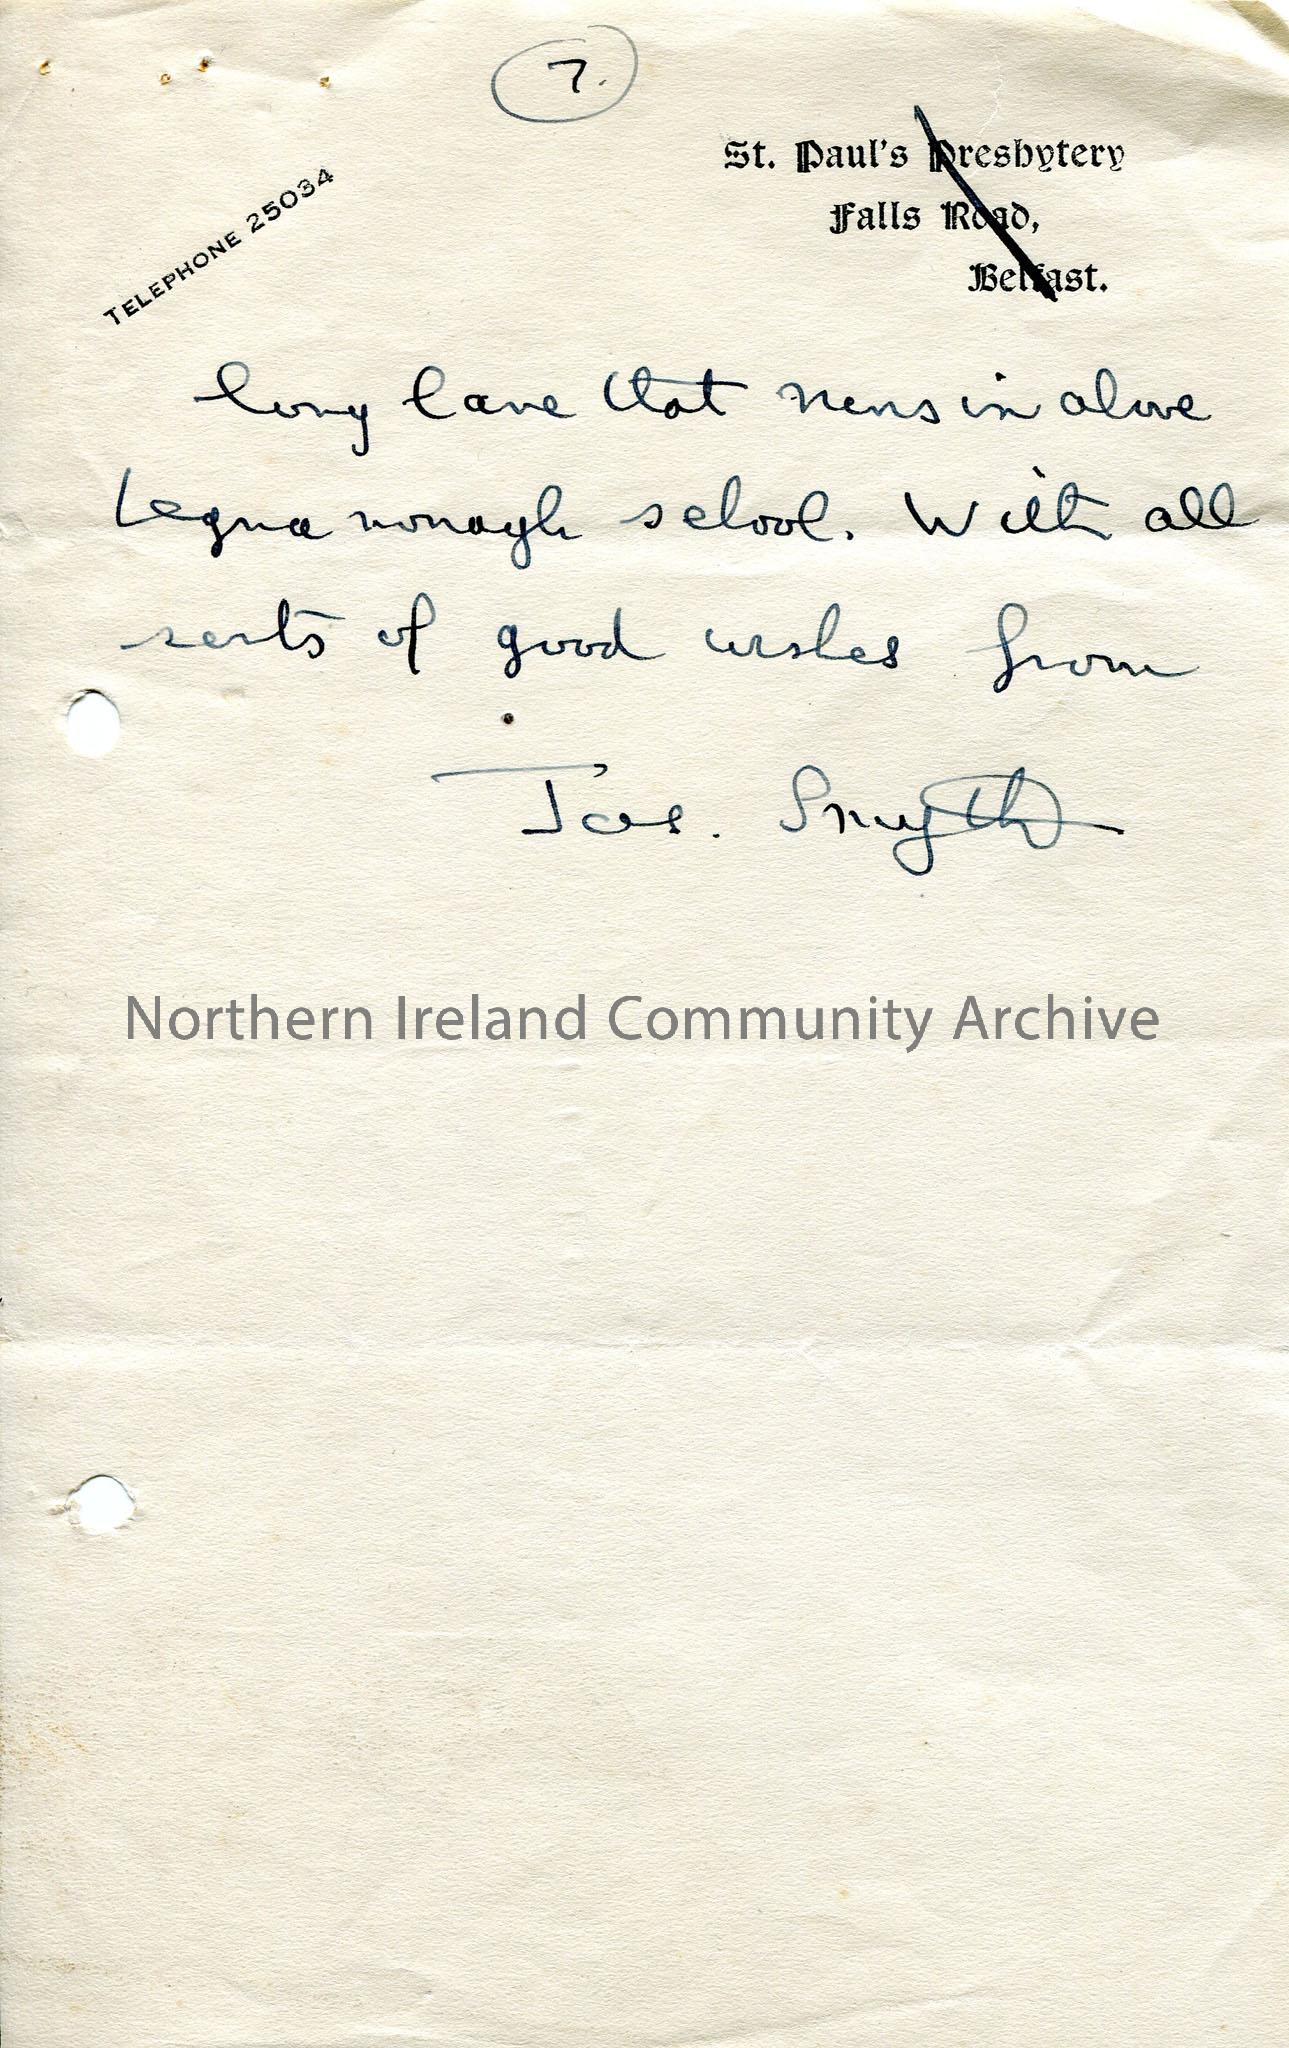 7.
TELEPHONE 25034
St. Paul's Presbytery
Falls Road,
Belfast.
long lane that runs in above
Legnamonagh school. With all
sorts of good wishes from
Jas. Smyth
Northern Ireland Community Archive